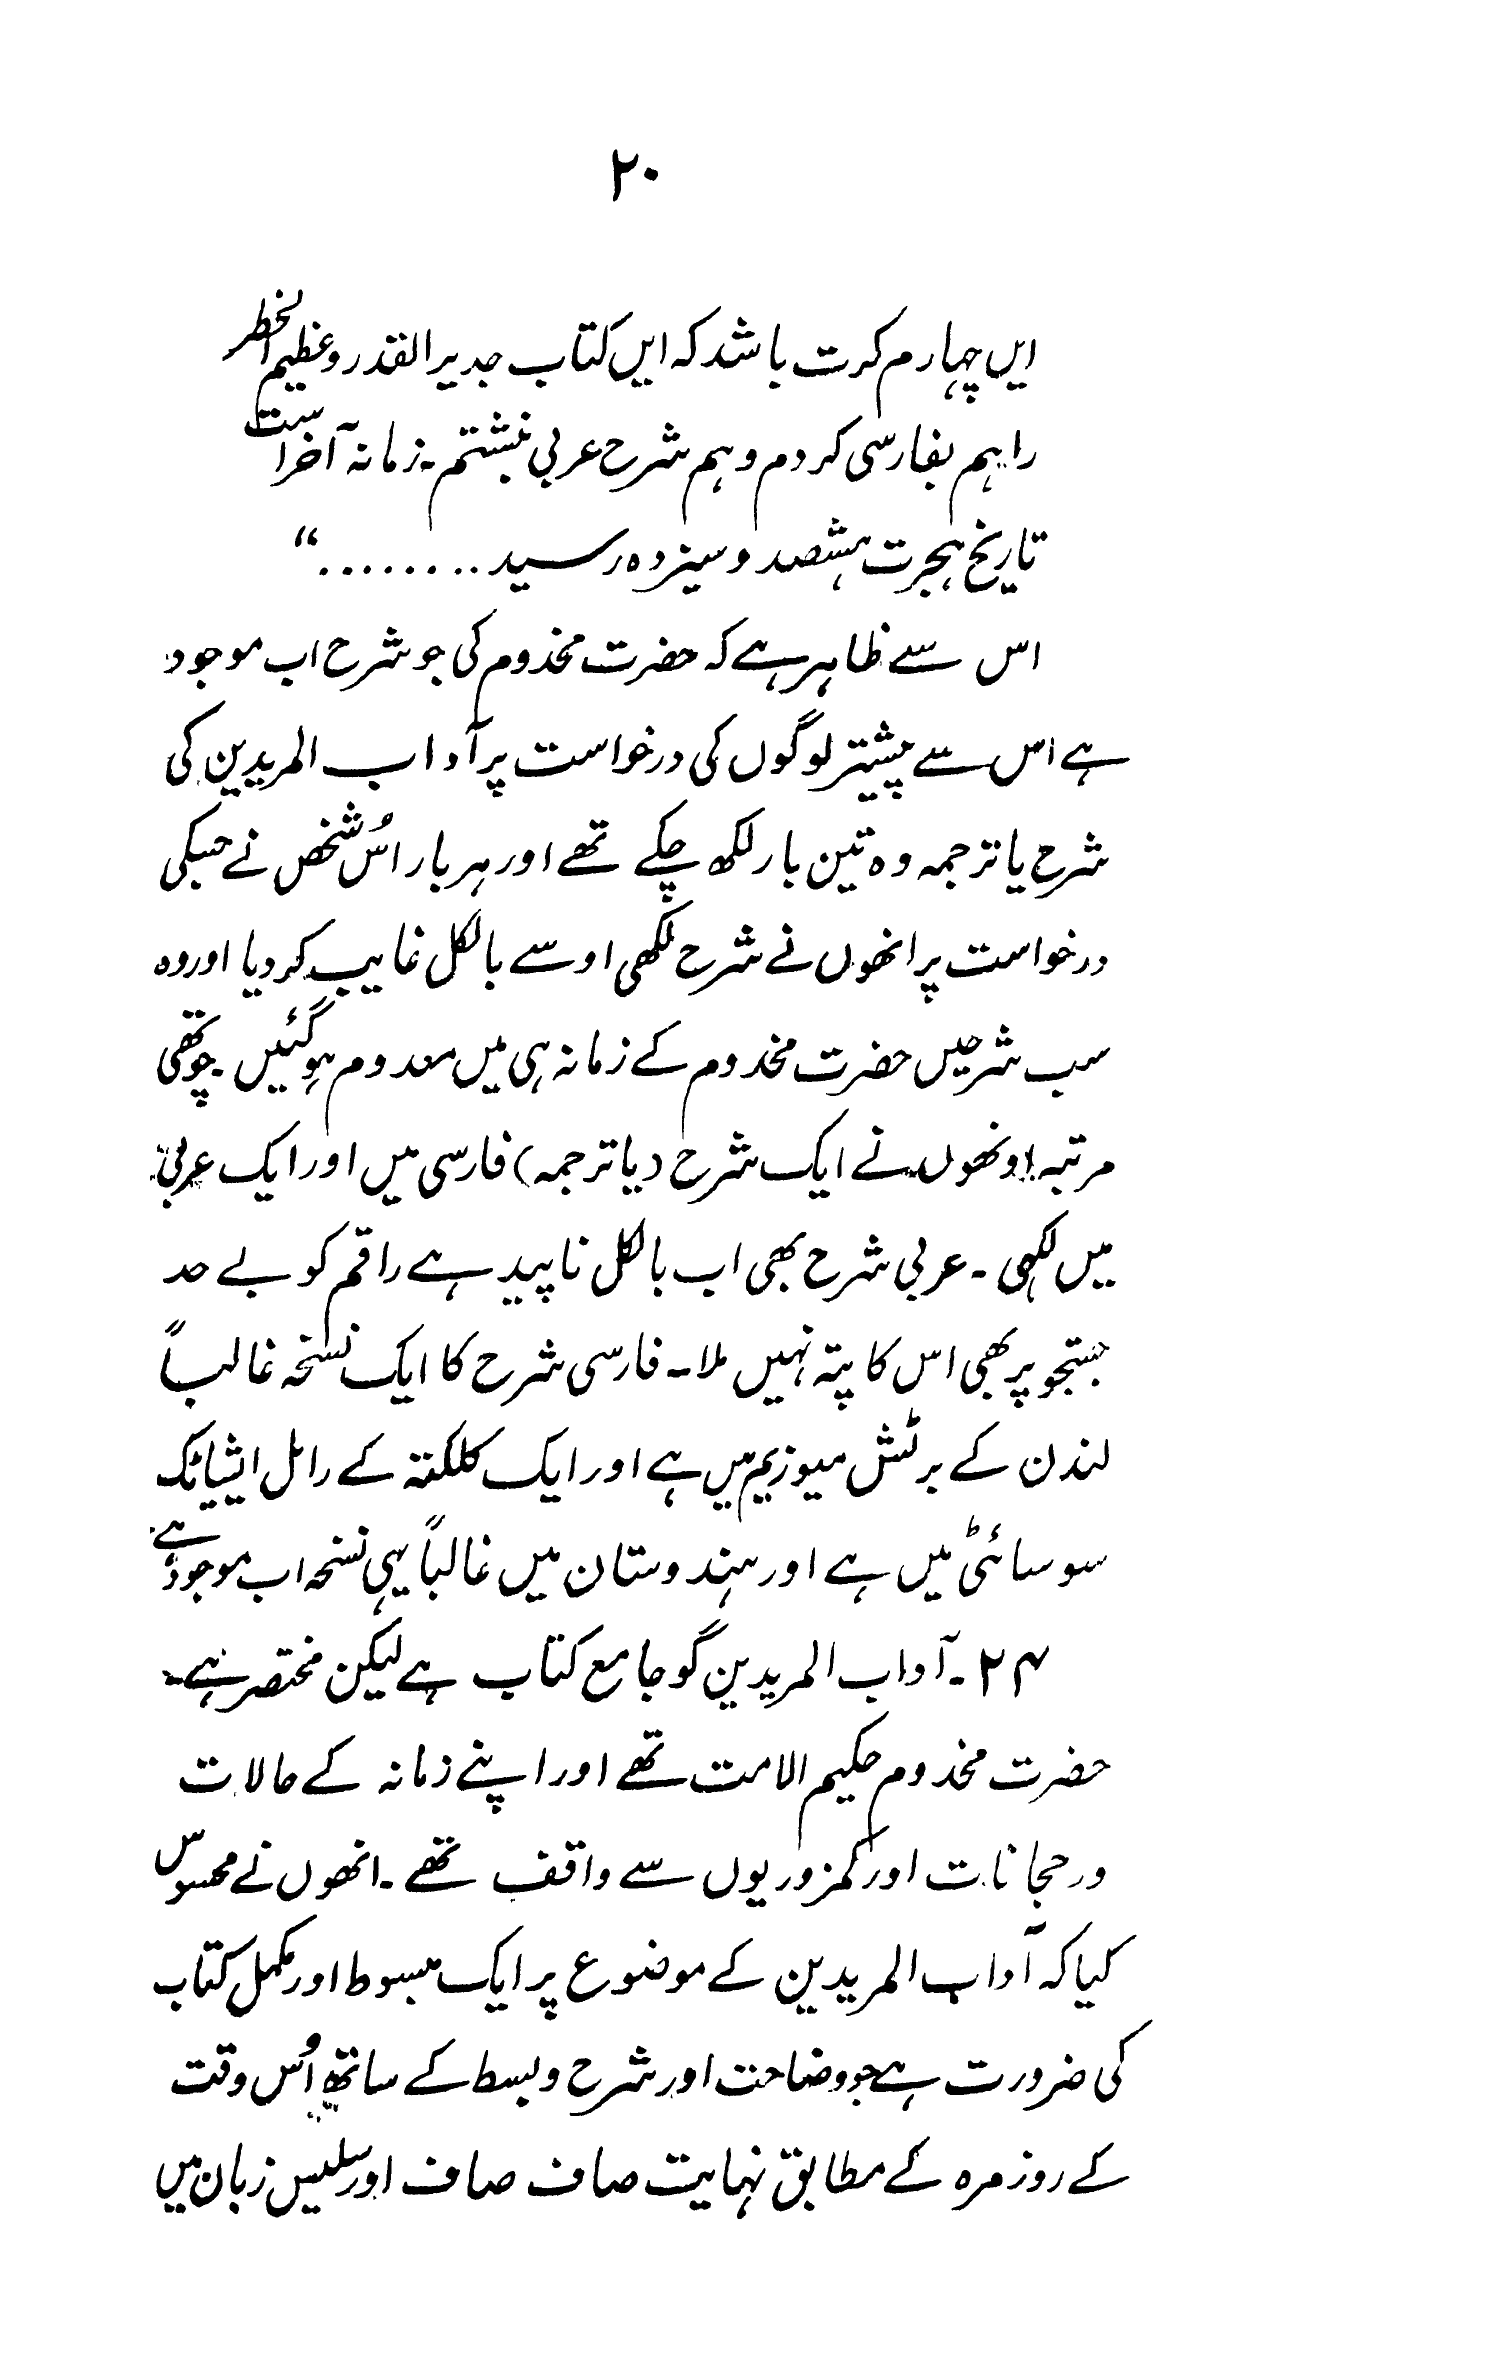 ۲۰
ایں چہارم کرت باشد کہ ایں کتاب جدیر القدر و عظیم الخطر
را ہم بفارسی کردم و ہم شرح عربی نبشتم ۔ زمانہ آخر است
تاریخ ہجرت ہشصد و سیزدہ رسید .........“
اس سے ظاہر ہے کہ حضرت مخدوم کی جو شرح اب موجود
ہے اس سے پیشتر لوگوں کی درخواست پر آداب المریدین کی
شرح یا ترجمہ وہ تین بار لکھ چکے تھے اور ہر بار اُس شخص نے جسکی
درخواست پر انھوں نے شرح لکھی اوسے بالکل غایب کر دیا اور وہ
سب شرحیں حضرت مخدوم کے زمانہ ہی میں معدوم ہوگئیں ۔ چوتھی
مرتبہ اونھوں نے ایک شرح (یا ترجمہ) فارسی میں اور ایک عربی
میں لکھی ۔ عربی شرح بھی اب بالکل ناپید ہے راقم کو بے حد
جستجو پر بھی اس کا پتہ نہیں ملا ۔ فارسی شرح کا ایک نسخہ غالباً
لندن کے برٹش میوزیم میں ہے اور ایک کلکتہ کے رائل ایشیاٹک
سوسائٹی میں ہے اور ہندوستان میں غالباً یہی نسخہ اب موجود ہے
۲۴ ۔ آداب المریدین گو جامع کتاب ہے لیکن مختصر ہے ۔
حضرت مخدوم حکیم الامت تھے اور اپنے زمانہ کے حالات
و رحجانات اور کمزوریوں سے واقف تھے ۔ انھوں نے محسوس
کیا کہ آداب المریدین کے موضوع پر ایک مبسوط اور مکمل کتاب
کی ضرورت ہے جو وضاحت اور شرح و بسط کے ساتھ اُس وقت
کے روز مرہ کے مطابق نہایت صاف صاف اور سلیس زبان میں